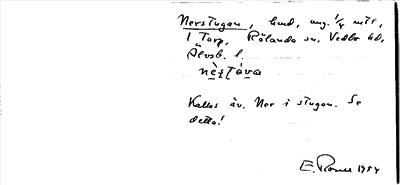 Nerstugan, hmd, ung. 1/4 mtl,
i Torp, Rölanda sn, Vedbo hd,
Älvsb. l.
nèṣtáva
Kallas äv. Ner i stugan. Se
detta!
E. Rosell 1954